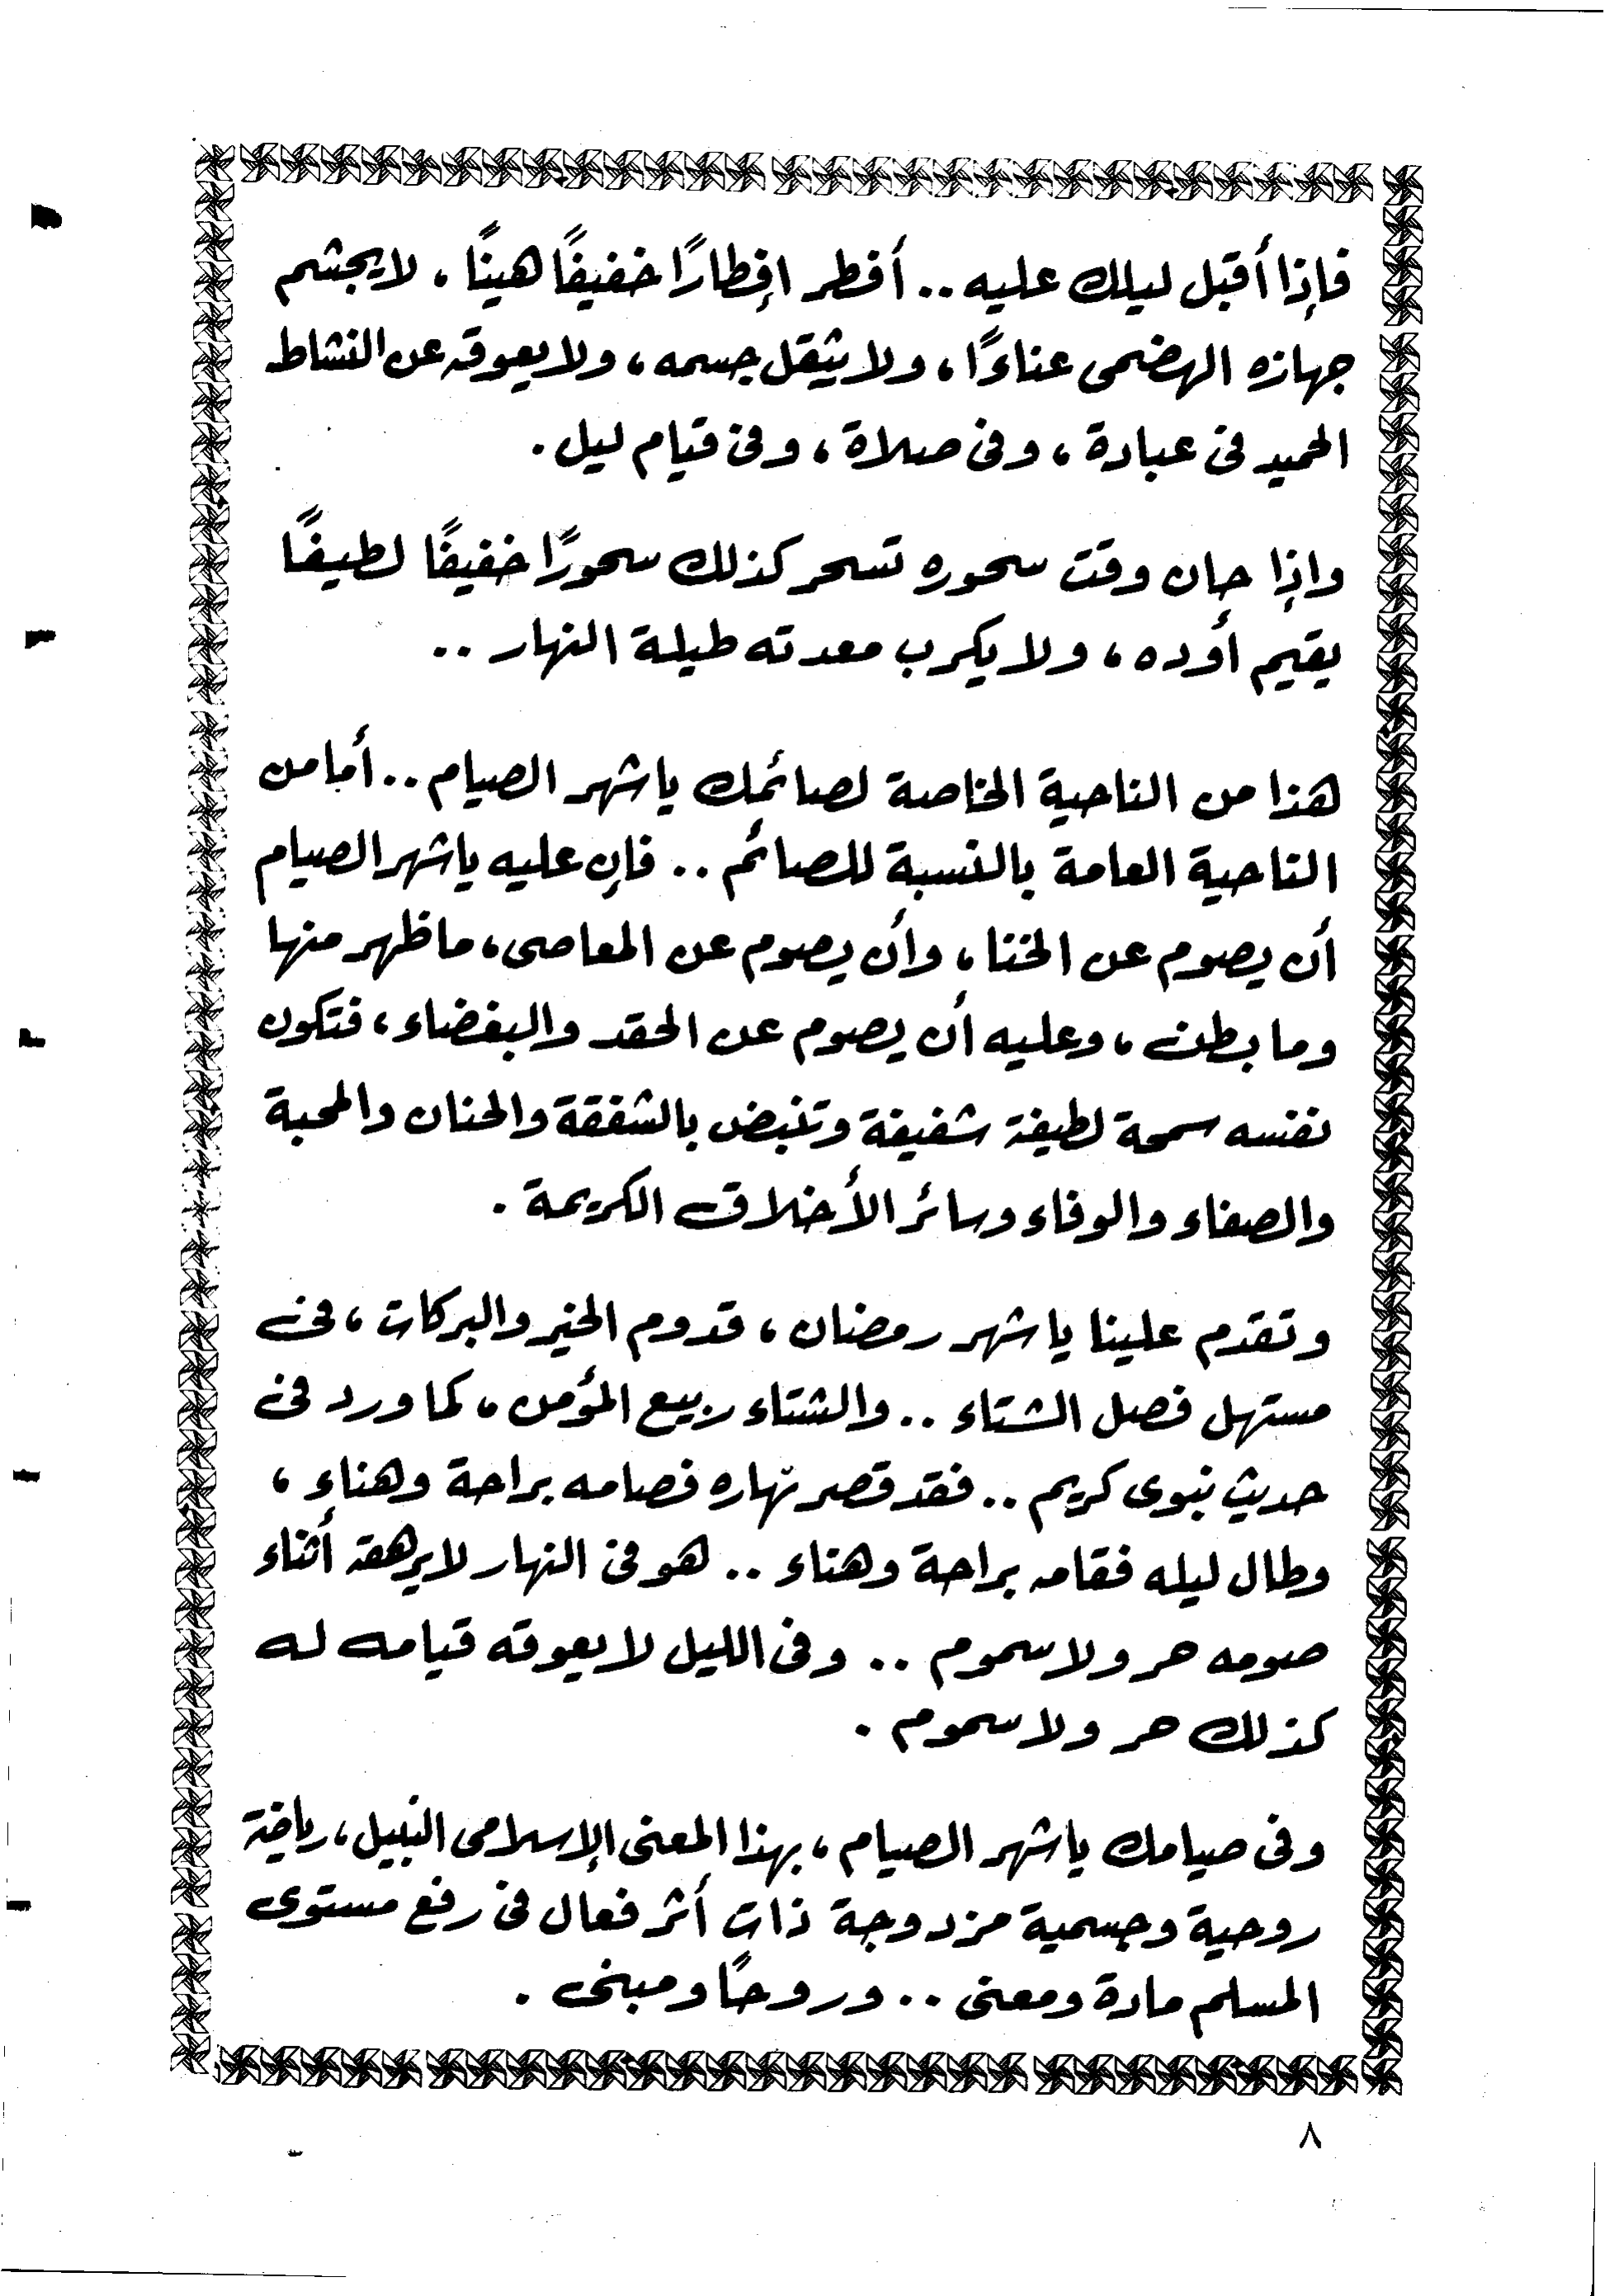 فإذا أقبل ليلك عليه .. أفطر إفطارًا خفيفًا هينًا ، لا يجشم
جهازه الهضمى عناءً ا ، ولا يثقل جسمه ، ولا يعوقه عن النشاط
الحميد فى عبادة ، وفى صلاة ، وفى قيام ليل .
وإذا حان وقت سحوره تسحر كذلك سحورًا خفيفًا لطيفًا
يقيم أوده ، ولا يكرب معدته طيلة النهار ..
هذا من الناحية الخاصة لصائمك يا شهر الصيام .. أما من
الناحية العامة بالنسبة للصائم .. فإن عليه يا شهر الصيام
أن يصوم عن الخنا ، وأن يصوم عن المعاصى ، ما ظهر منها
وما بطن ، وعليه أن يصوم عن الحقد والبغضاء ، فتكون
نفسه سمحة لطيفة شفيفة وتنبض بالشفقة والحنان والمحبة
والصفاء والوفاء وسائر الأخلاق الكريمة .
وتقدم علينا يا شهر رمضان ، قدوم الخير والبركات ، فى
مستهل فصل الشتاء .. والشتاء ربيع المؤمن ، كما ورد فى
حديث نبوى كريم .. فقد قصر نهاره فصامه براحة وهناءٍ ،
وطال ليله فقامه براحة وهناء .. هو فى النهار لا يرهقه أثناء
صومه حر ولا سموم .. وفى الليل لا يعوقه قيامه له
كذلك حر ولا سموم .
وفى صيامك يا شهر الصيام ، بهذا المعنى الإسلامى النبيل ، رياضة
روحية وجسمية مزدوجة ذات أثر فعال فى رفع مستوى
المسلم مادة ومعنى .. وروحًا ومبنى .
٨